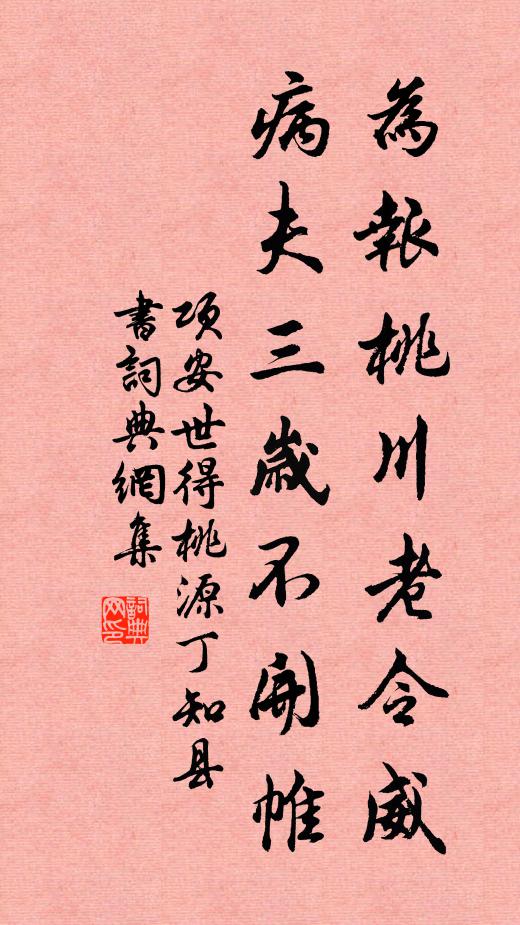 為報桃川老令威
病夫三歲不開帷
項安世得桃源丁知县
書詞典網集
詞典網印